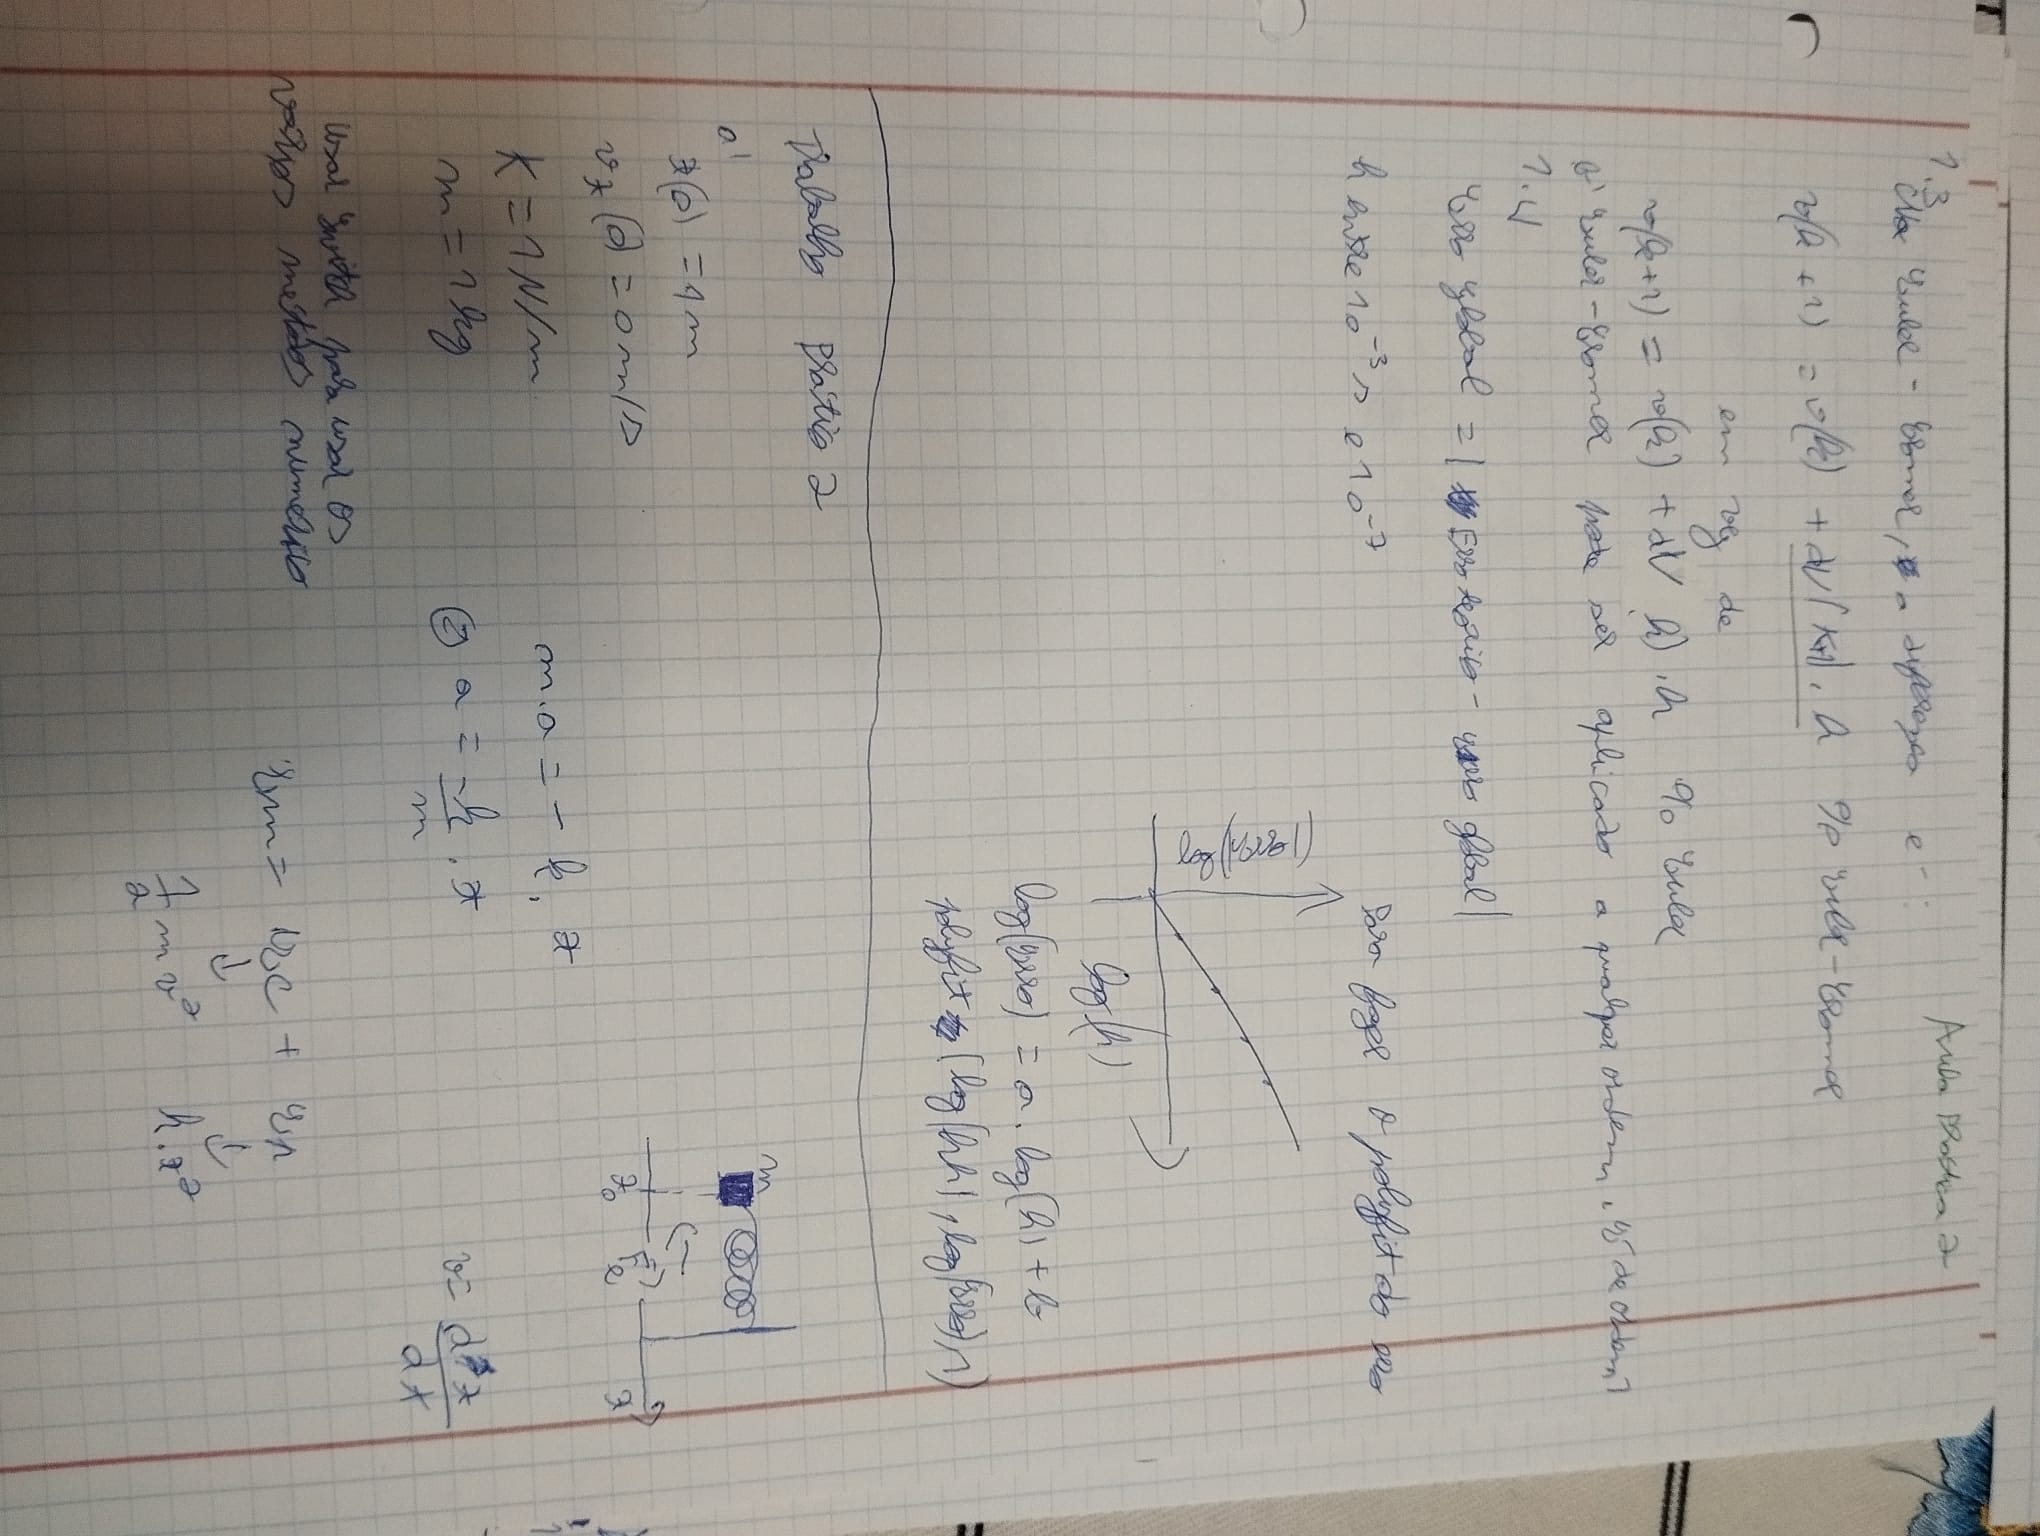 Aula Prática 2
1.3
Na Euler-Cromer, a diferença é:
v(k+1) = v(k) + dV(k+1).h % Euler-Cromer
em vez de
v(k+1) = v(k) + dV k).h % Euler
Euler-Cromer pode ser aplicado a qualquer ordem, de ordem 1
1.4
Erro global = | Erro teórico - erro global|
h entre 10^-3 s e 10^-7
Para fazer o polyfit do erro
log(|erro|)
log(h)
log(erro) = a.log(h) + b
polyfit (log(hh), log(erro),1)
Trabalho Prático 2
a)
x(0) = 1m
m
v_x(0) = 0 m/s
F_e
x_0
x
K = 1N/m
m.a = - k.x
m = 1kg
⇔ a = -k/m . x
v = dx/dt
usar switch para usar os
vários métodos numérico
Em = Ec + Ep
↓ ↓
1/2 m v² k.x²